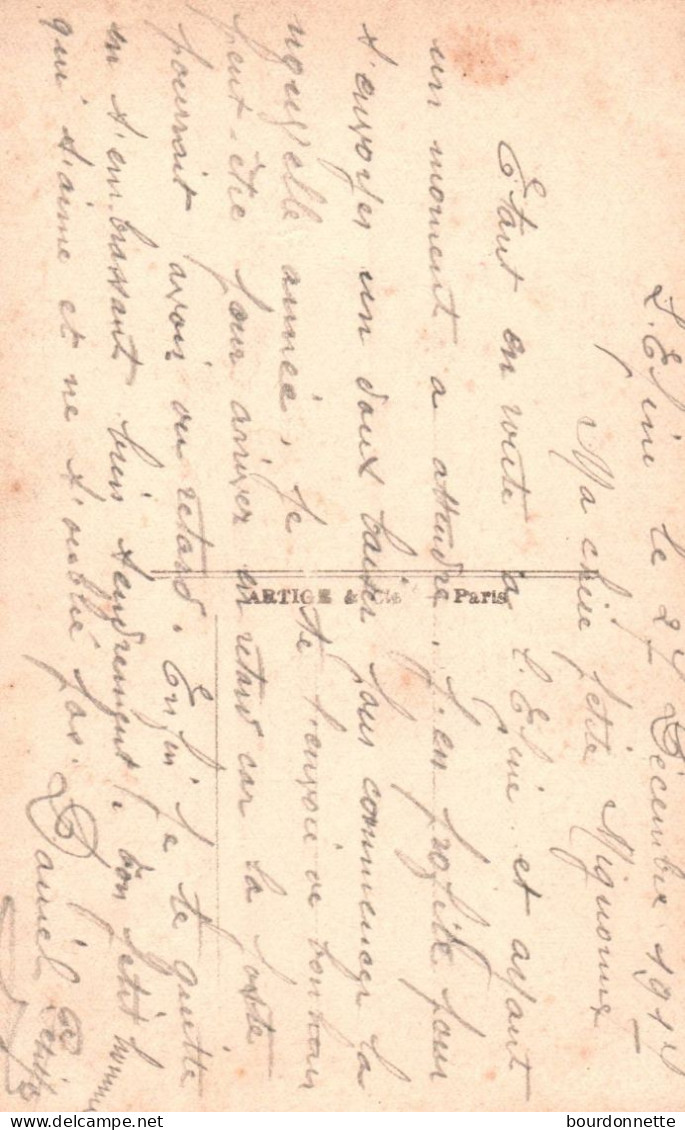 L'Epine le 27 Décembre 191
Ma chère petite Mignonne
Etant en route a L'Epine et ayant
un moment a attendre, j'en profite pour
t'envoyer un doux baiser pour commencer la
nouvelle année, je te t'envoie ce bonjour
peut-être pour arriver en retard car la poste
pourrait avoir du retard. Enfin je te quitte
en t'embrassant bien tendrement, ton petit homme
qui t'aime et ne t'oublie pas.
Daniel
ARTIGE & Cie Paris
bourdonnette